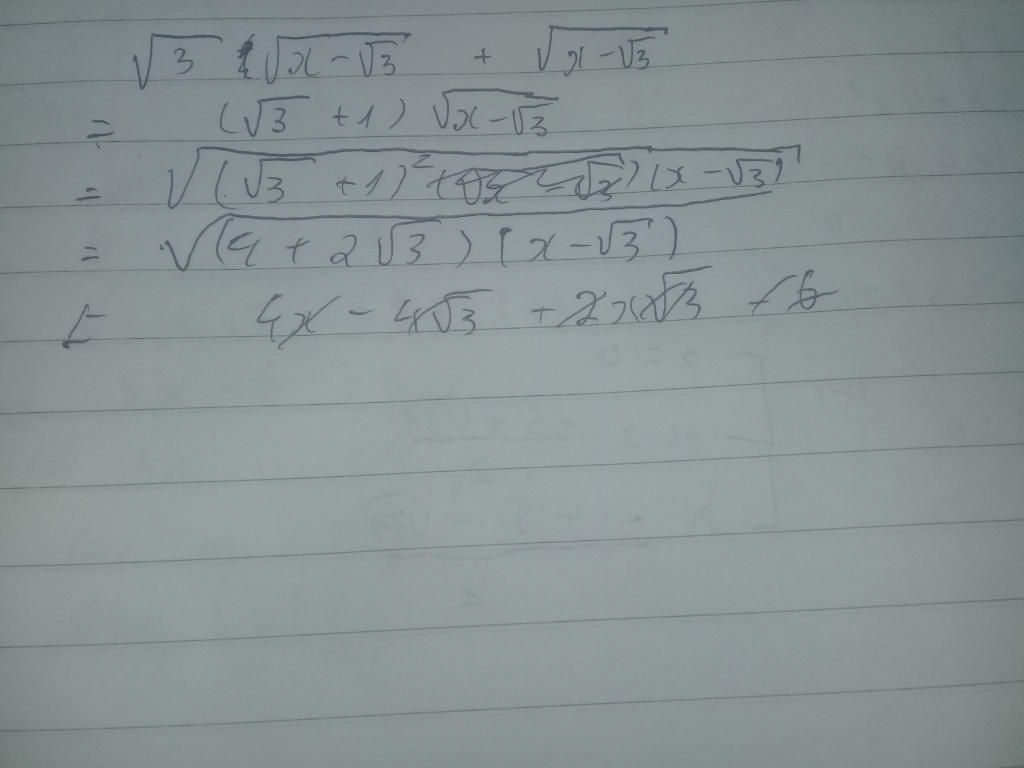 √3 √(x-√3) + √(x-√3)
= (√3 + 1) √(x-√3)
= √((√3 + 1)² (x-√3))
= √((4 + 2√3)(x-√3))
4x - 4√3 + 2x√3 - 6